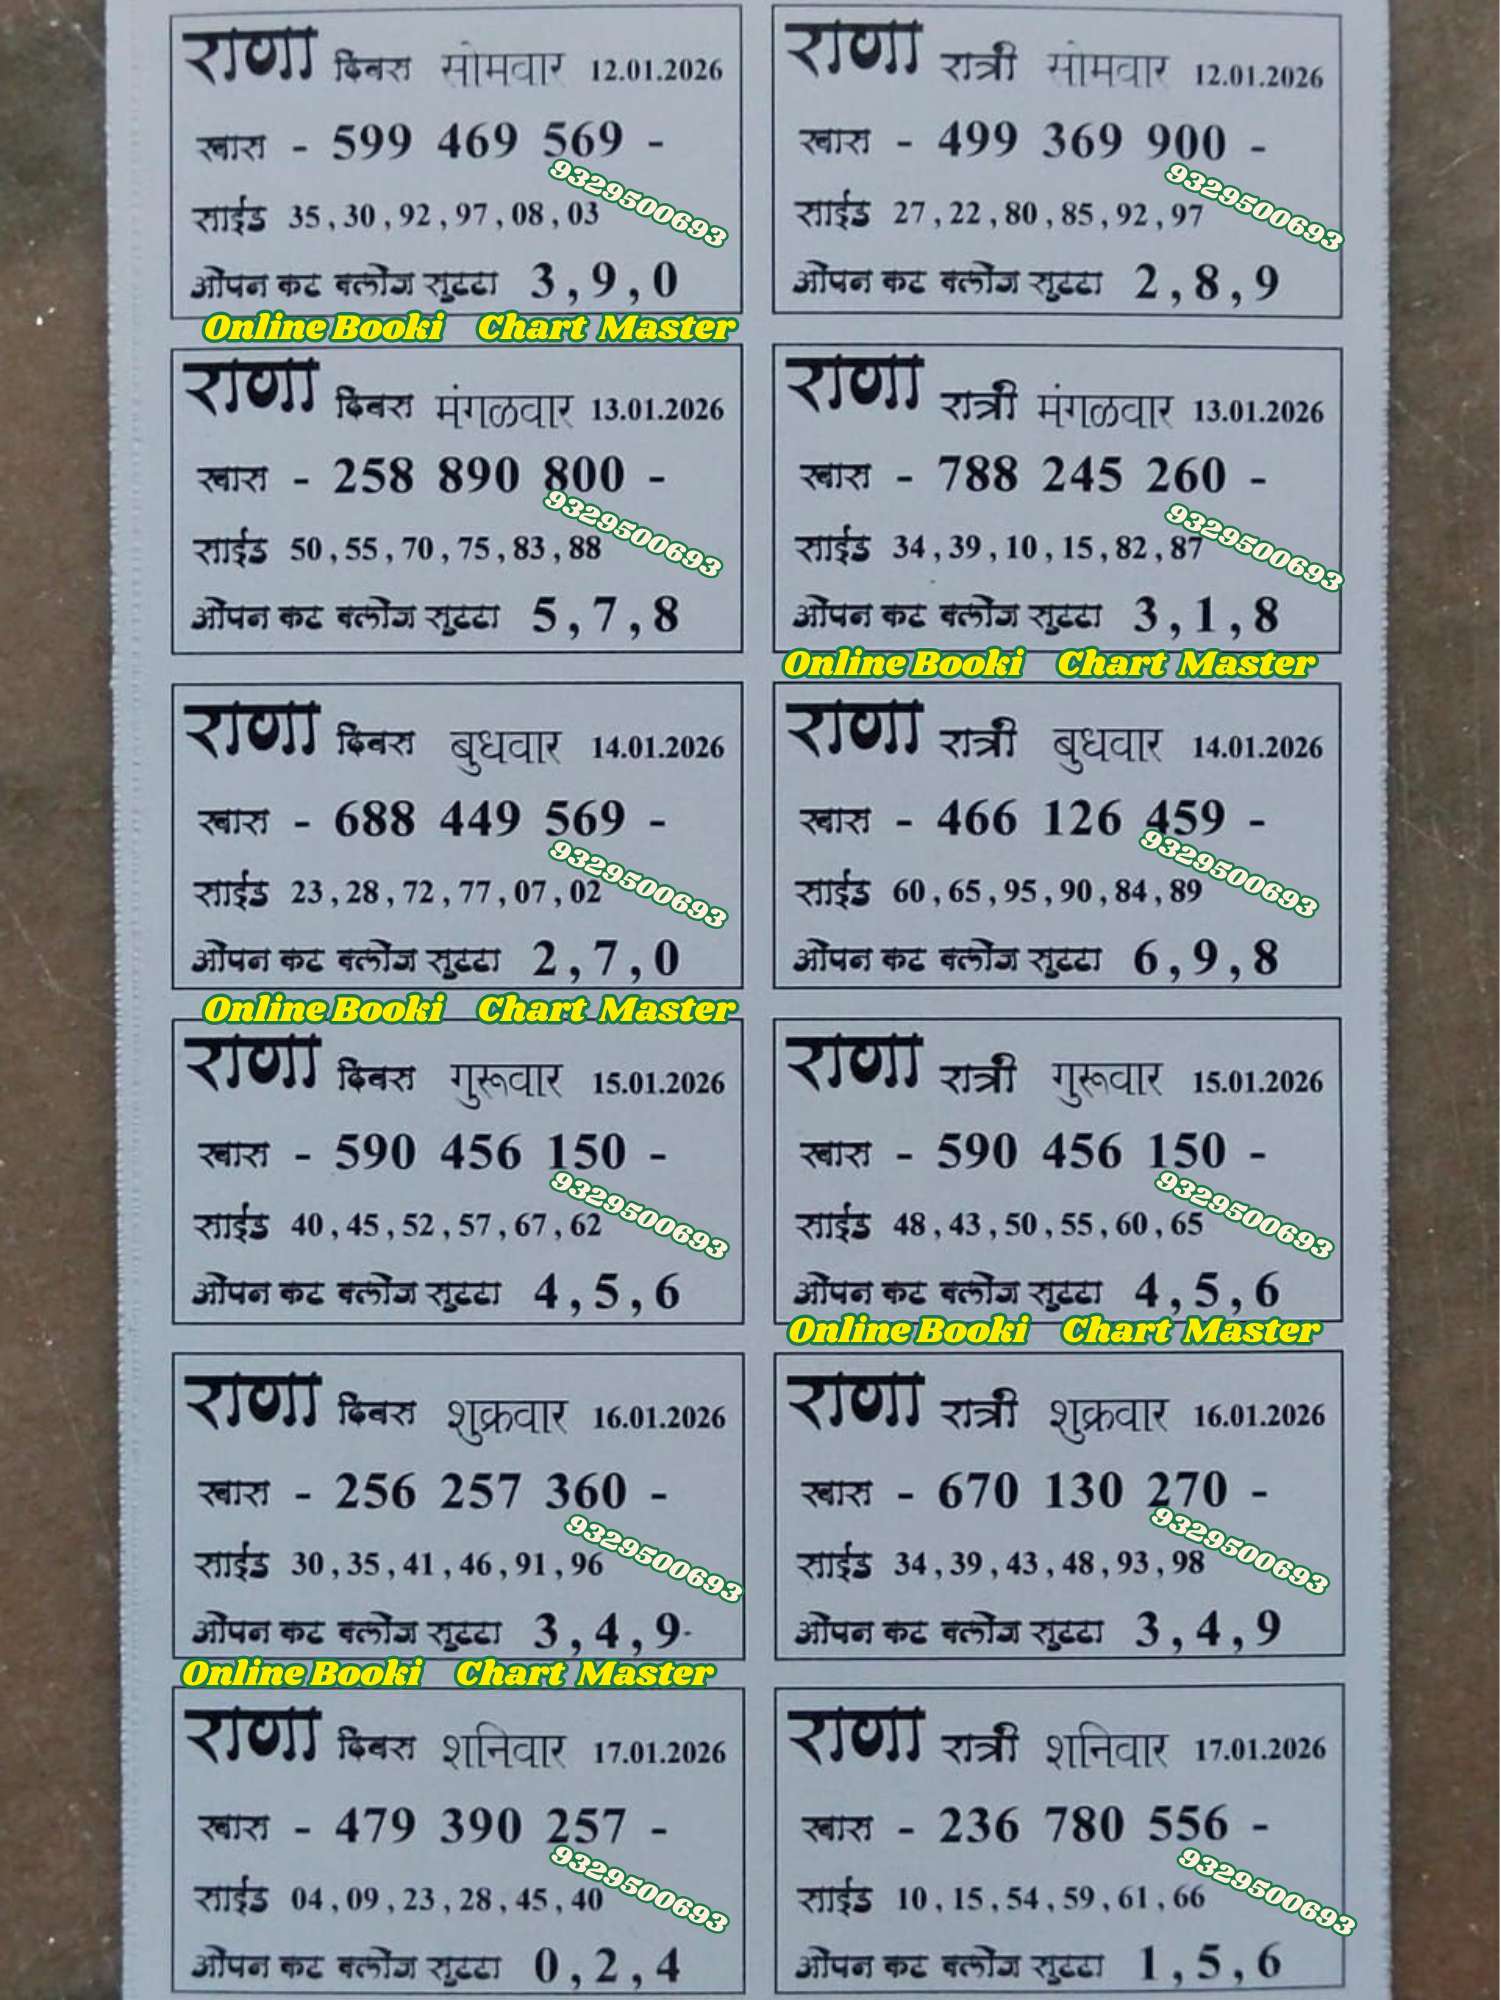 राणा दिवस सोमवार 12.01.2026
खास - 599 469 569 -
9329500693
साईड 35 , 30 , 92 , 97 , 08 , 03
ओपन कट क्लोज सुटटा 3 , 9 , 0
Online Booki Chart Master
राणा रात्री सोमवार 12.01.2026
खास - 499 369 900 -
9329500693
साईड 27 , 22 , 80 , 85 , 92 , 97
ओपन कट क्लोंज सुटटा 2 , 8 , 9
राणा दिवस मंगळवार 13.01.2026
खास - 258 890 800 -
9329500693
साईड 50 , 55 , 70 , 75 , 83 , 88
ओपन कट क्लोंज सुटटा 5 , 7 , 8
राणा रात्री मंगळवार 13.01.2026
खास - 788 245 260 -
9329500693
साईड 34 , 39 , 10 , 15 , 82 , 87
ओपन कट क्लोंज सुटटा 3 , 1 , 8
Online Booki Chart Master
राणा दिवस बुधवार 14.01.2026
खास - 688 449 569 -
9329500693
साईड 23 , 28 , 72 , 77 , 07 , 02
ओपन कट क्लोंज सुटटा 2 , 7 , 0
Online Booki Chart Master
राणा रात्री बुधवार 14.01.2026
खास - 466 126 459 -
9329500693
साईड 60 , 65 , 95 , 90 , 84 , 89
ओपन कट क्लोंज सुटटा 6 , 9 , 8
राणा दिवस गुरूवार 15.01.2026
खास - 590 456 150 -
9329500693
साईड 40 , 45 , 52 , 57 , 67 , 62
ओपन कट क्लोंज सुटटा 4 , 5 , 6
राणा रात्री गुरूवार 15.01.2026
खास - 590 456 150 -
9329500693
साईड 48 , 43 , 50 , 55 , 60 , 65
ओपन कट क्लोंज सुटटा 4 , 5 , 6
Online Booki Chart Master
राणा दिवस शुक्रवार 16.01.2026
खास - 256 257 360 -
9329500693
साईड 30 , 35 , 41 , 46 , 91 , 96
ओपन कट क्लोंज सुटटा 3 , 4 , 9
Online Booki Chart Master
राणा रात्री शुक्रवार 16.01.2026
खास - 670 130 270 -
9329500693
साईड 34 , 39 , 43 , 48 , 93 , 98
ओपन कट क्लोंज सुटटा 3 , 4 , 9
राणा दिवस शनिवार 17.01.2026
खास - 479 390 257 -
9329500693
साईड 04 , 09 , 23 , 28 , 45 , 40
ओपन कट क्लोंज सुटटा 0 , 2 , 4
राणा रात्री शनिवार 17.01.2026
खास - 236 780 556 -
9329500693
साईड 10 , 15 , 54 , 59 , 61 , 66
ओपन कट क्लोंज सुटटा 1 , 5 , 6